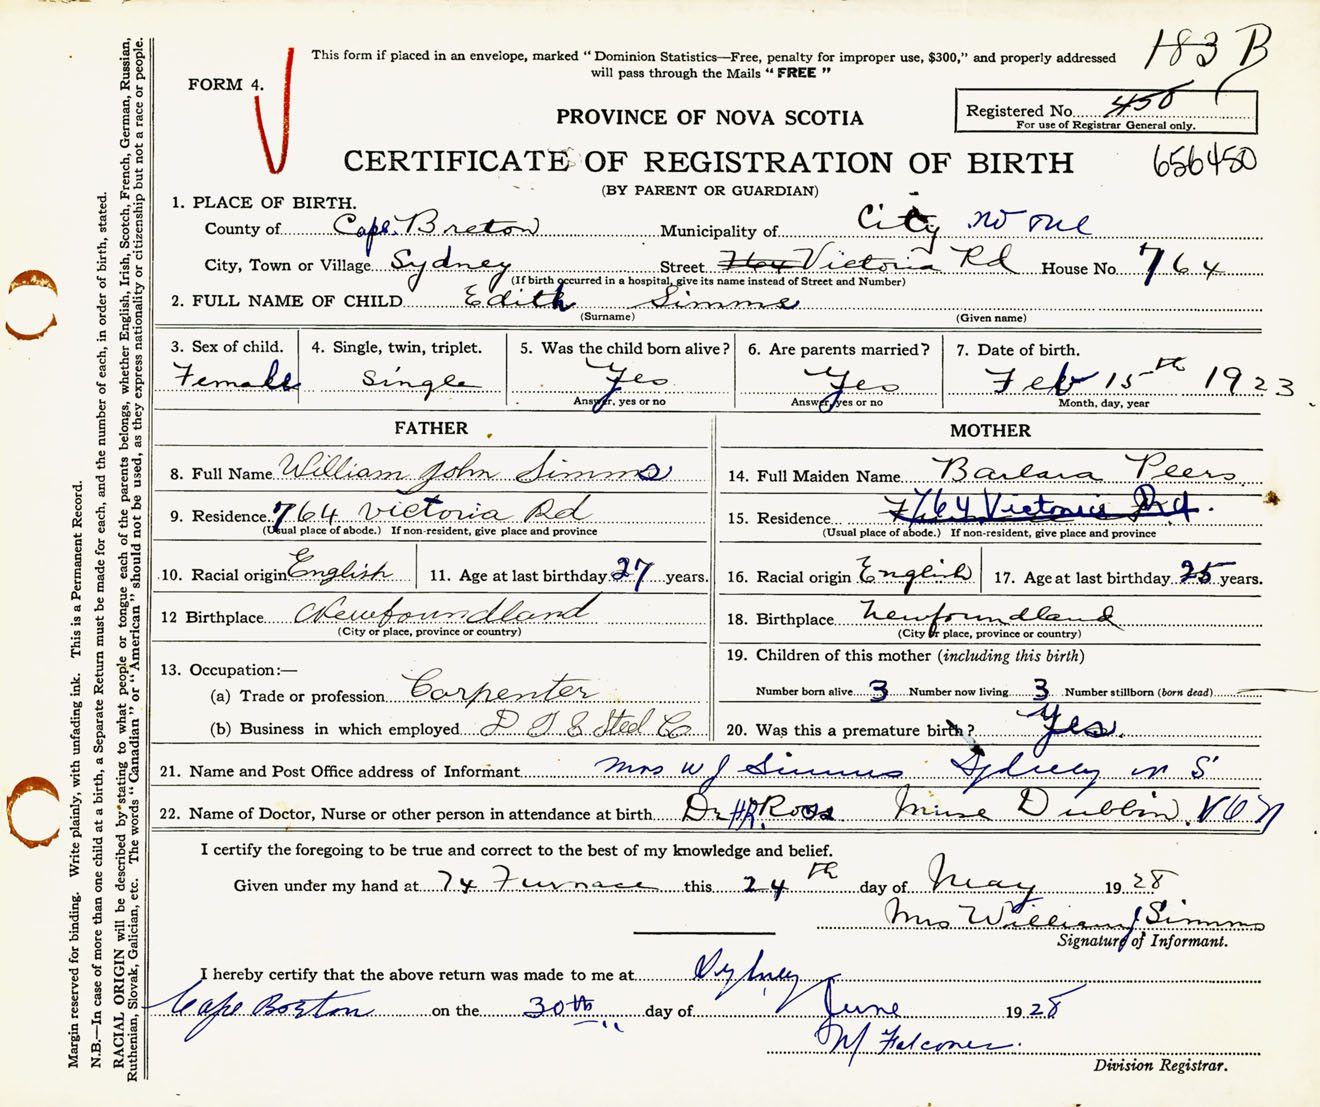 This form if placed in an envelope, marked “ Dominion Statistics—Free, penalty for improper use, $300,” and properly addressed
will pass through the Mails “ FREE ”
183 B
FORM 4.
Registered No. 450
For use of Registrar General only.
PROVINCE OF NOVA SCOTIA
656450
CERTIFICATE OF REGISTRATION OF BIRTH
(BY PARENT OR GUARDIAN)
1. PLACE OF BIRTH.
County of Cape Breton Municipality of City no one
City, Town or Village Sydney Street Victoria Rd House No. 764
(If birth occurred in a hospital, give its name instead of Street and Number)
2. FULL NAME OF CHILD Edith Simms
(Surname) (Given name)
3. Sex of child. 4. Single, twin, triplet. 5. Was the child born alive? 6. Are parents married? 7. Date of birth.
Female Single Yes Yes Feb 15th 1923
Answer, yes or no Answer, yes or no Month, day, year
FATHER
8. Full Name William John Simms
9. Residence. 764 Victoria Rd
(Usual place of abode.) If non-resident, give place and province
10. Racial origin English 11. Age at last birthday 27 years.
12 Birthplace Newfoundland
(City or place, province or country)
13. Occupation:—
(a) Trade or profession Carpenter
(b) Business in which employed D I S Steel Co
MOTHER
14. Full Maiden Name Barbara Peers
15. Residence 764 Victoria Rd.
(Usual place of abode.) If non-resident, give place and province
16. Racial origin English 17. Age at last birthday 25 years.
18. Birthplace Newfoundland
(City or place, province or country)
19. Children of this mother (including this birth)
Number born alive 3 Number now living 3 Number stillborn (born dead) —
20. Was this a premature birth? Yes.
21. Name and Post Office address of Informant Mrs W J Simms Sydney N S
22. Name of Doctor, Nurse or other person in attendance at birth Dr H.R. Ross Dubbin V O N
I certify the foregoing to be true and correct to the best of my knowledge and belief.
Given under my hand at 74 Furnace this 24th day of May 1928
Mrs William J Simms
Signature of Informant.
I hereby certify that the above return was made to me at Sydney
Cape Breton on the 30th day of June 1928
Falconer.
Division Registrar.
Margin reserved for binding. Write plainly, with unfading ink. This is a Permanent Record.
N.B.—In case of more than one child at a birth, a Separate Return must be made for each, and the number of each, in order of birth, stated.
RACIAL ORIGIN will be described by stating to what people or tongue each of the parents belongs, whether English, Irish, Scotch, French, German, Russian,
Ruthenian, Slovak, Galician, etc. The words “Canadian” or “American” should not be used, as they express nationality or citizenship but not a race or people.